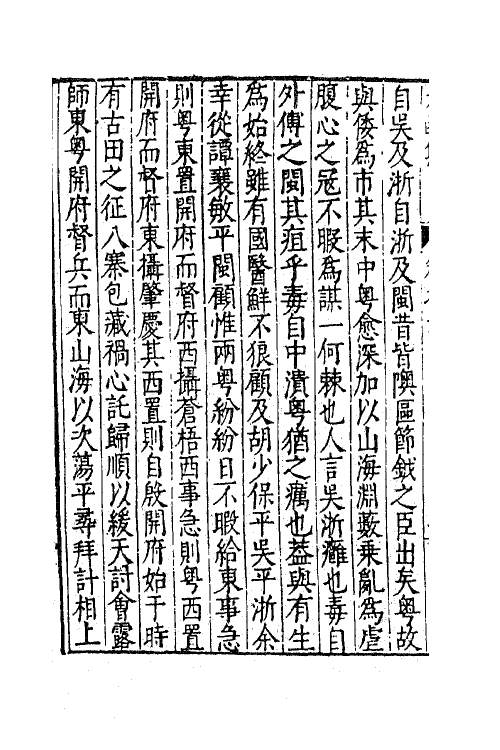 自吴及浙自浙及閩昔皆噢區節鉞之臣出矣粤故
與倭為市其末中粤愈深加以山海淵藪乗亂為虐
腹心之冦不暇為謀一何棘也人言吴浙癰也毒自
外傳之閩其疽乎毒自中潰粤猶之癘也葢與有生
為始終雖有國醫鮮不狼顧及胡少保平吴平浙余
幸從譚襄敏平閩顧惟兩粤紛紛日不暇給東事急
則粤東置開府而督府西攝蒼梧西事急則粤西置
開府而督府東攝肇慶其西置則自殷開府始于時
有古田之征八寨包藏禍心託歸順以緩天討會露
師東粤開府督兵而東山海以次蕩平尋拜計相上